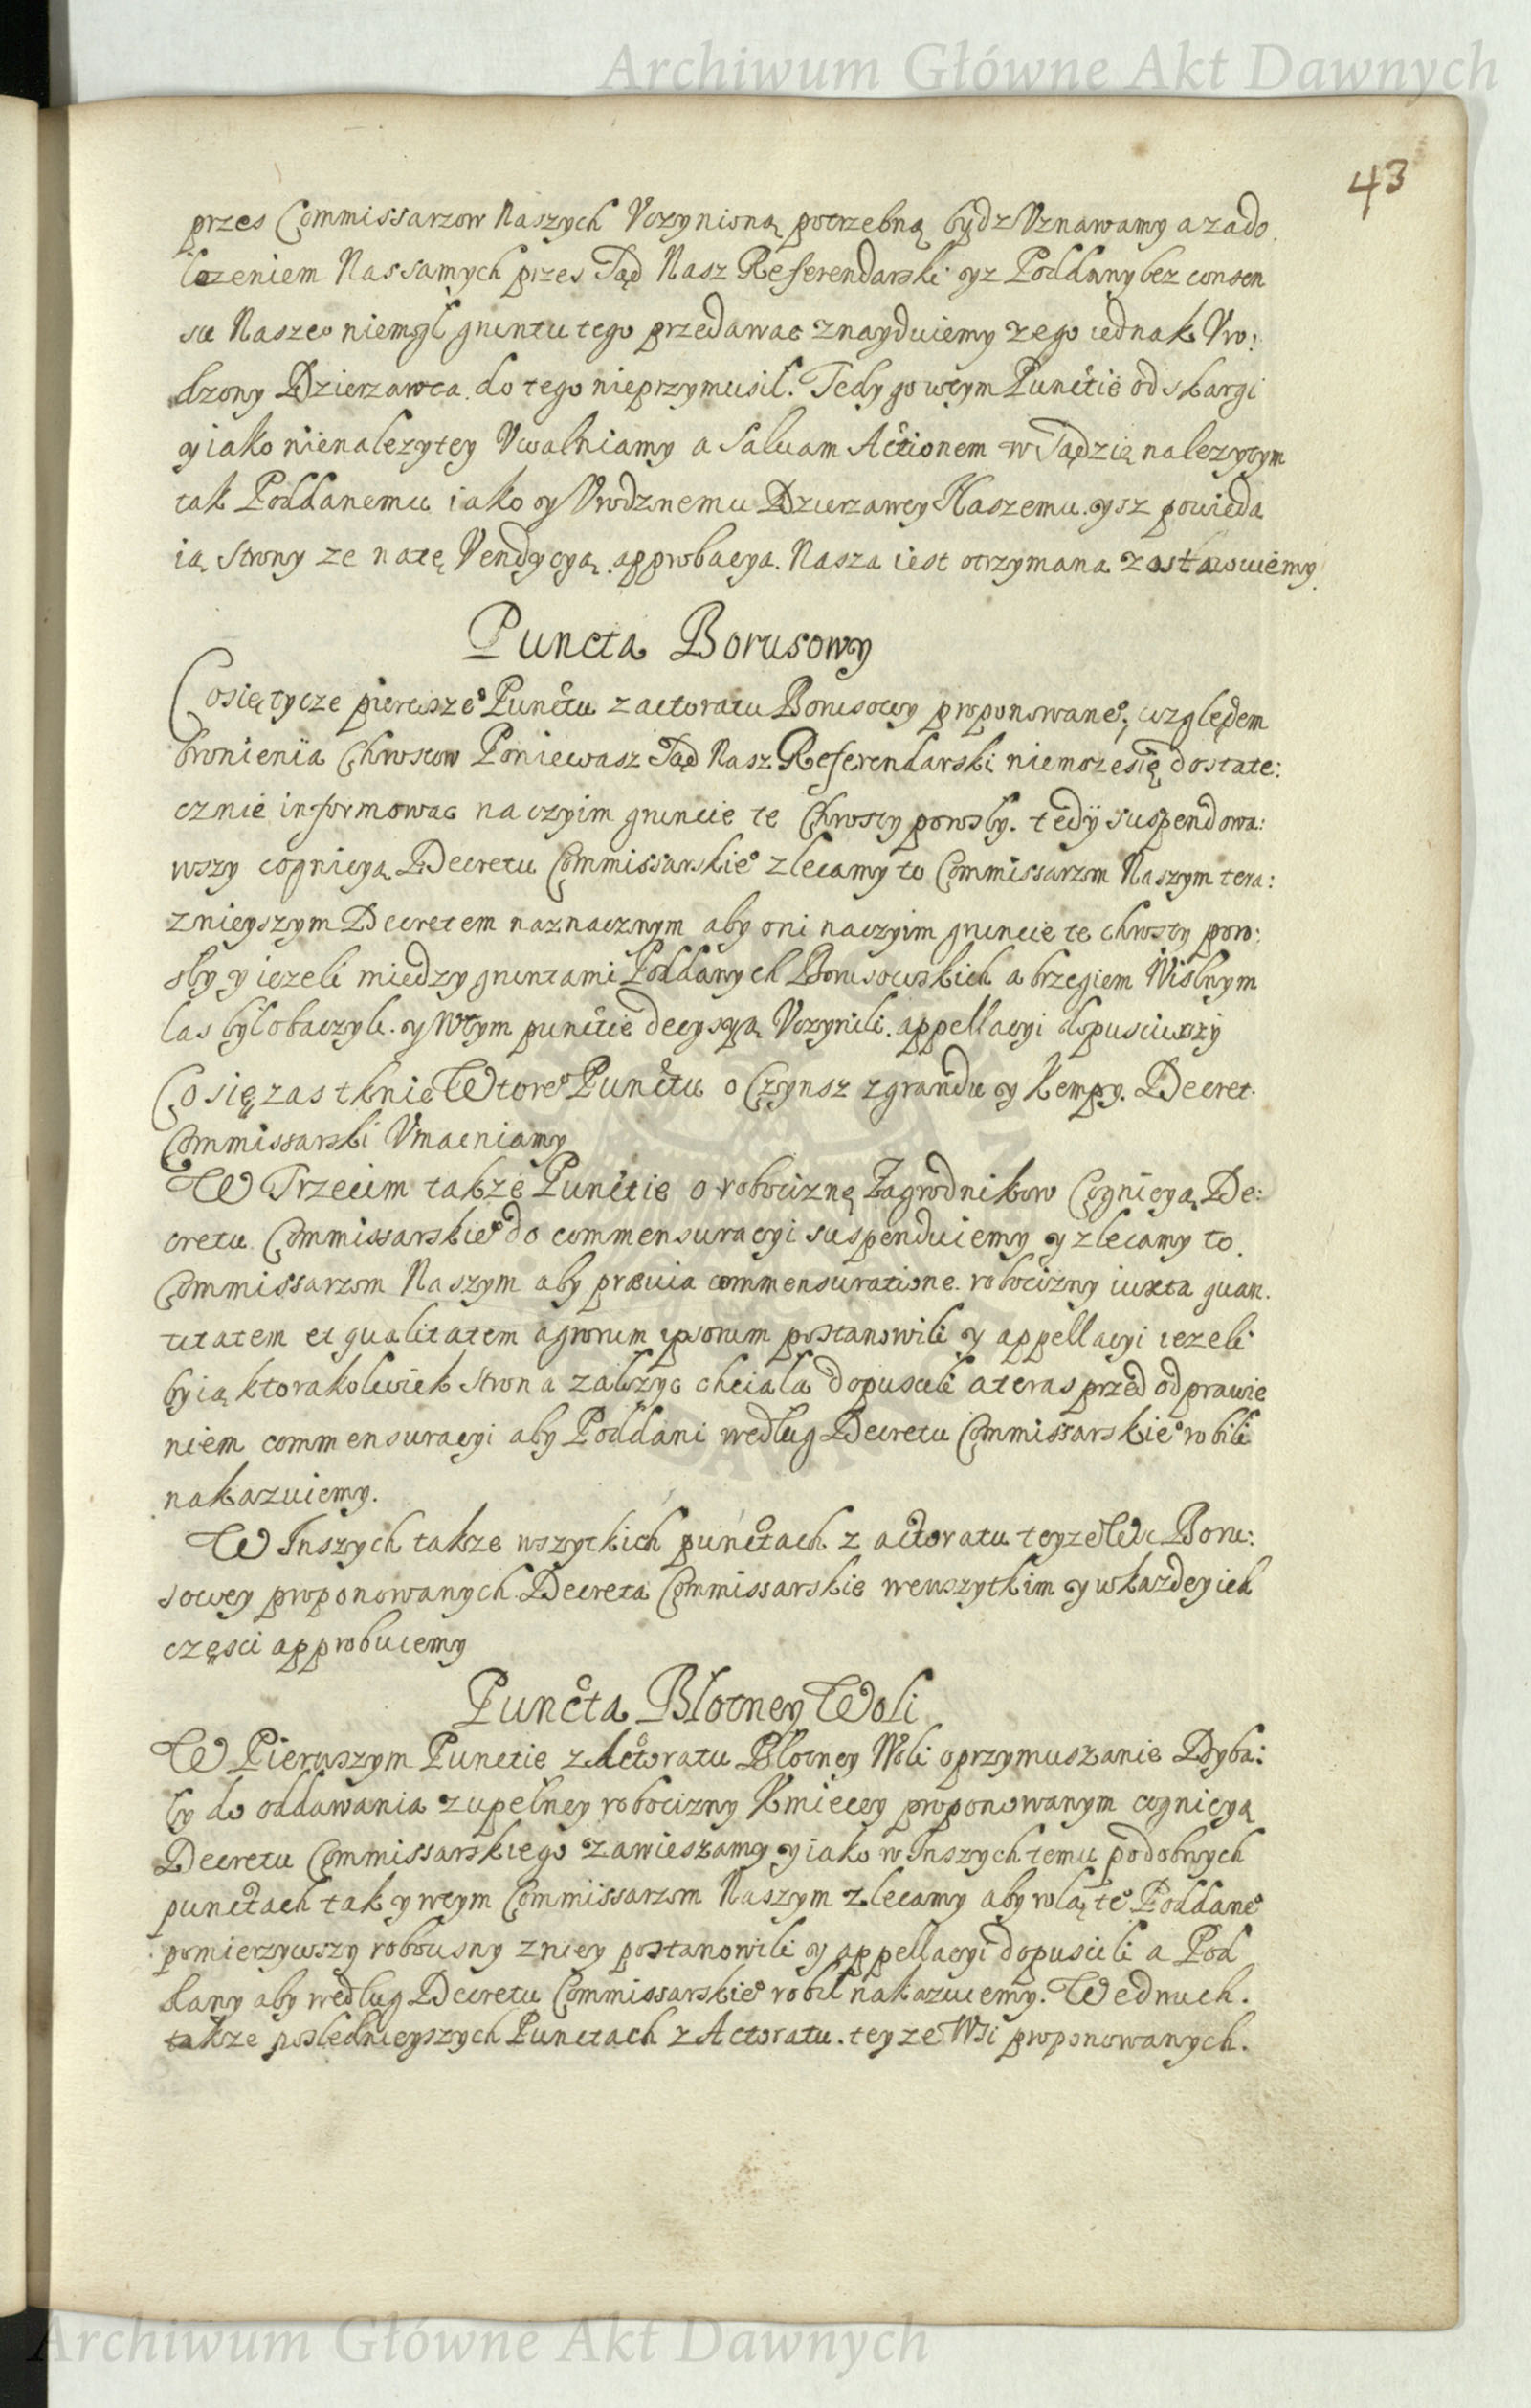 Archiwum Główne Akt Dawnych
43
przes Commissarzow Naszych Vczynioną potrzebną bydz Vznawamy a zado
lozeniem Nassamych przes Sąd Nasz Referendarski yz Poddany bez consen
su Nasze⁰ niemgł gruntu tego przedawac znayduiemy zego iednak Vro:
dzony Dzierzawca do tego nieprzymusil. Tedy go wtym Punctie od skargi
y iako nienalezytey Vwalniamy a Saluam Actionem w Sądzię nalezytym
tak Poddanemu iako y Vrodznemu Dzierzawcy Naszemu. ysz powieda
ią Strony ze natę Vendycyą approbacya. Nasza iest otrzymana zostawuiemy.
Puncta Borusowy
Co się tycze pierwsze⁰ Punctu z actoratu Borusowy proponowane⁰, względem
bronienia Chrostow Poniewasz Sąd Nasz Referendarski niemoze się dostate:
cznie informowac na czyim gruncie te Chrosty porosły. tedy suspendowa:
wszy cognicyą Decretu Commissarskie⁰ zlecamy to Commissarzom Naszym tera:
znieyszym Decretem naznacznym aby oni naczyim gruncie te chrosty poro:
sły y iezeli miedzy gruntami Poddanych Borusowskich a brzegiem Wislnym
las był obaczyli. y Wtym punctie decysyą Vczynili. appellacyi dopusciwszy
Co się zas tknie Wtore⁰ Punctu o Czynsz zgrandu y Kempy. Decret
Commissarski Vmacniamy
W Trzecim takze Punctie o robociznę Zagrodnikow Cognicyą De:
cretu Commissarskie⁰ do commensuracyi suspenduiemy y zlecamy to
Commissarzom Naszym aby præuia commensuratione robocizny iuxta quan.
titatem et qualitatem agrorum ipsorum postanowili y appellacyi iezeli
by ią ktorakolwiek Strona założyc chciala dopuscili a teras przed odprawie
niem commensuracyi aby Poddani według Decretu Commissarskie⁰ robili
nakazuiemy.
W Inszych takze wszytkich punctach z actoratu teyze Wsi Boru:
sowey proponowanych Decreta Commissarskie wewszytkim y wkazdey ich
częsci approbuiemy
Puncta Blotney Woli
W Pierwszym Punctie z Actoratu Błotney Woli oprzymuszanie Dyba:
ły do oddawania zupełney robocizny Kmiecey proponowanym cognicyą
Decretu Commissarskiego zawieszamy y iako w Inszych temu podobnych
punctach tak y wtym Commissarzom Naszym zlecamy aby rolą te⁰ Poddane⁰
pomierzywszy robocisny zniey postanowili y appellacyi dopuscili a Pod
dany aby według Decretu Commissarskie⁰ robił nakazuiemy. W ednuch.
takze poslednieyszych Punctach z Actoratu. teyze Wsi proponowanych.
Archiwum Główne Akt Dawnych